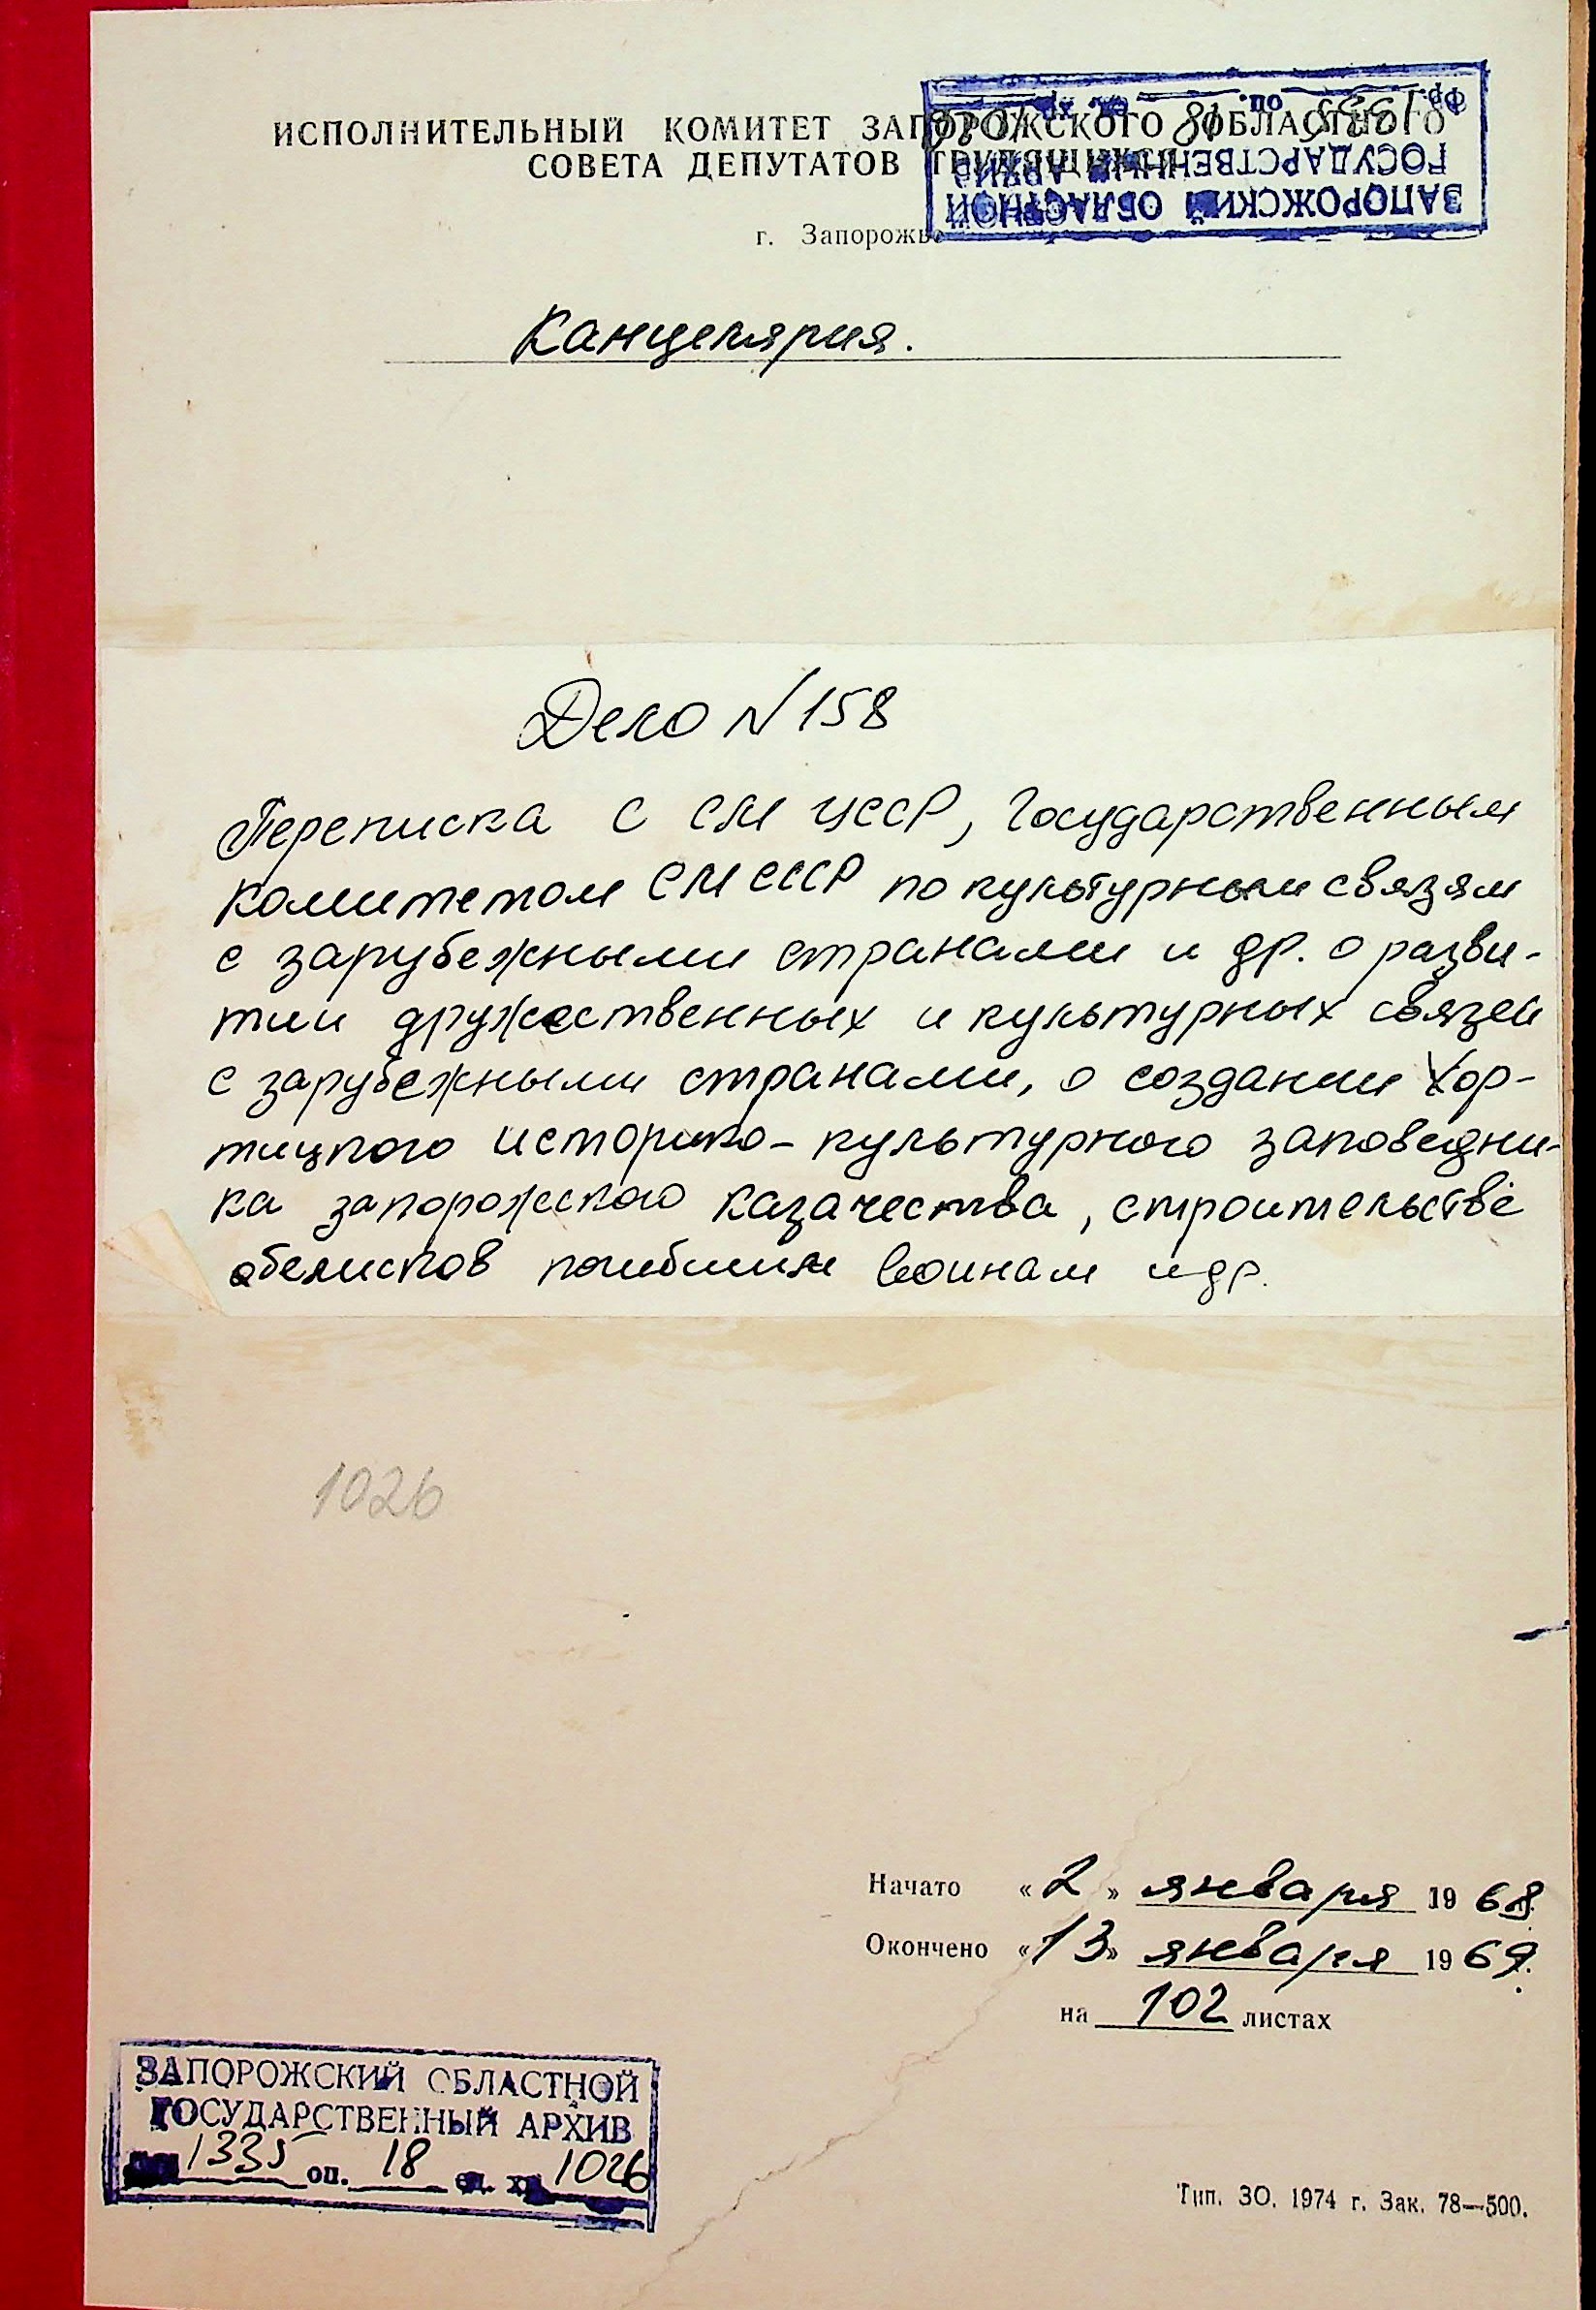 ИСПОЛНИТЕЛЬНЫЙ КОМИТЕТ ЗАПОРОЖСКОГО ОБЛАСТНОГО
СОВЕТА ДЕПУТАТОВ ТРУДЯЩИХСЯ
г. Запорожье
ЗАПОРОЖСКИЙ ОБЛАСТНОЙ
ГОСУДАРСТВЕННЫЙ АРХИВ
Фр. 1335 оп. 18 ед. хр.
Канцелярия.
Дело N 158
Переписка с СМ УССР, Государственным
комитетом СМ СССР по культурным связям
с зарубежными странами и др. о разви-
тии дружественных и культурных связей
с зарубежными странами, о создании Хор-
тицкого историко-культурного заповедни-
ка запорожского казачества, строительстве
обелисков погибшим воинам и др.
1026
Начато «2» января 1968.
Окончено «13» января 1969.
на 102 листах
ЗАПОРОЖСКИЙ ОБЛАСТНОЙ
ГОСУДАРСТВЕННЫЙ АРХИВ
1335 оп. 18 ед. хр. 1026
Тип. ЗО. 1974 г. Зак. 78—500.